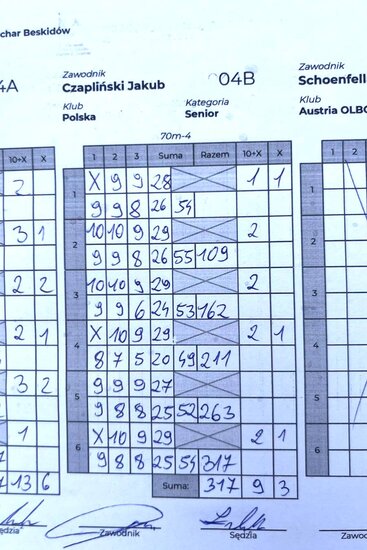 char Beskidów
4A
10+X X
2
3 1
2 2
2 1
3 2
1
13 6
Zawodnik
Czapliński Jakub
04B
Klub
Polska
Kategoria
Senior
70m-4
1 2 3 Suma Razem 10+X X
1 X 9 9 28 1 1
9 9 8 26 54
2 10 10 9 29 2
9 9 8 26 55 109
3 10 10 9 29 2
9 9 6 24 53 162
4 X 10 9 29 2 1
8 7 5 20 49 211
5 9 9 9 27
9 8 8 25 52 263
6 X 10 9 29 2 1
9 8 8 25 54 317
Suma: 317 9 3
Zawodnik
Sędzia
Zawodnik
Schoenfell
Klub
Austria OLBO
1 2
1
2
3
4
5
6
ędzia
Zawo